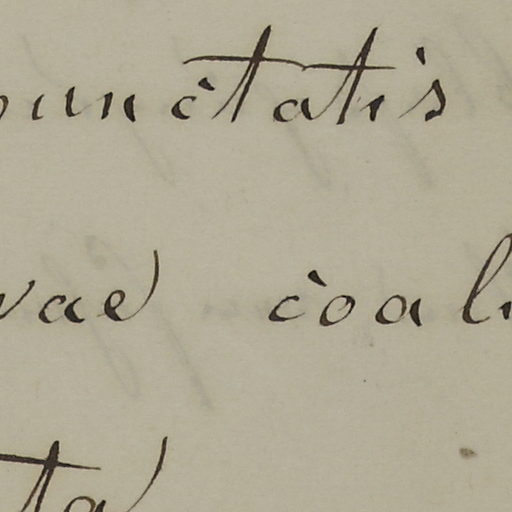 punctatis
vae coal
ta